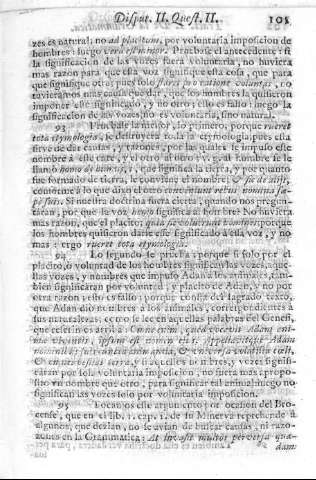 Disput. II. Quest. II. 103
zes es natural: no ad placitum, por voluntaria imposicion de
hombres: luego vera est minor. Pruebase el antecedente: si
la significacion de las vozes fuera voluntaria, no huviera
mas razon para que esta voz signifique esta cosa, que para
que signifique otra; pues solo ratione volunta
significado, y no otro; ello es falso: luego la
significacion de las vozes no es voluntaria, sino natural.
93 Pruebase la menor, lo primero, porque rueret
tota etymologia, se destruyera toda la etymologia; pues esta
sirve de dar causas, y razones, por las quales se impuso este
nombre à este care, y el otro al otro: v. g. al hombre se le
llamò homo de humus, i, que significa la tierra, y por quanto
fue formado de tierra, le conviene el nombre,
conforme à lo que dixo el otro conveniunt rebus nomina sæ-
pè suis. Si nuestra doctrina fuera cierta, quando nos pregun-
taran, por què la voz homo significa al hombre? No huviera
mas razon, que el placito; quia sic voluerunt homines: porque
los hombres quisieron darle esse significado à essa voz, y no
mas: ergo rueret tota etymologia.
94 Lo segundo se prueba: porque si solo por el
placito, ò voluntad de los hombres significaran las vozes, aque-
llas vozes, y nombres que impuso Adan à los animales, tam-
bien significaran por voluntad, y placito de Adan, y no por
otra razon: esto es falso; porque consta del sagrado texto,
que Adan diò nombres à los animales, correspondientes à
sus naturalezas; como se lee en aquellas palabras del Genesi,
Omne enim, quod vocavit Adam ani-
mæ viventis, ipsum est nomen eius. Appellavitque Adam
nominibus suis cuncta animantia, & universa volatilia cæli,
& omnes bestias terræ, y si aquellos nombres, y vozes signifi-
caran por sola voluntaria imposicion, no fuera mas proprio
sito un nombre que otro, para significar tal animal; luego no
significan las vozes solo por voluntaria imposicion.
95 Tocamos este argumento por ocasion del Bro-
cense, que en el lib. 1. cap. 1. de su Minerva reprehende à
algunos, que dezian, no se avian de buscar causas, ni razo-
nes en la Grammatica: At invasit multos perversa quæ-
dam